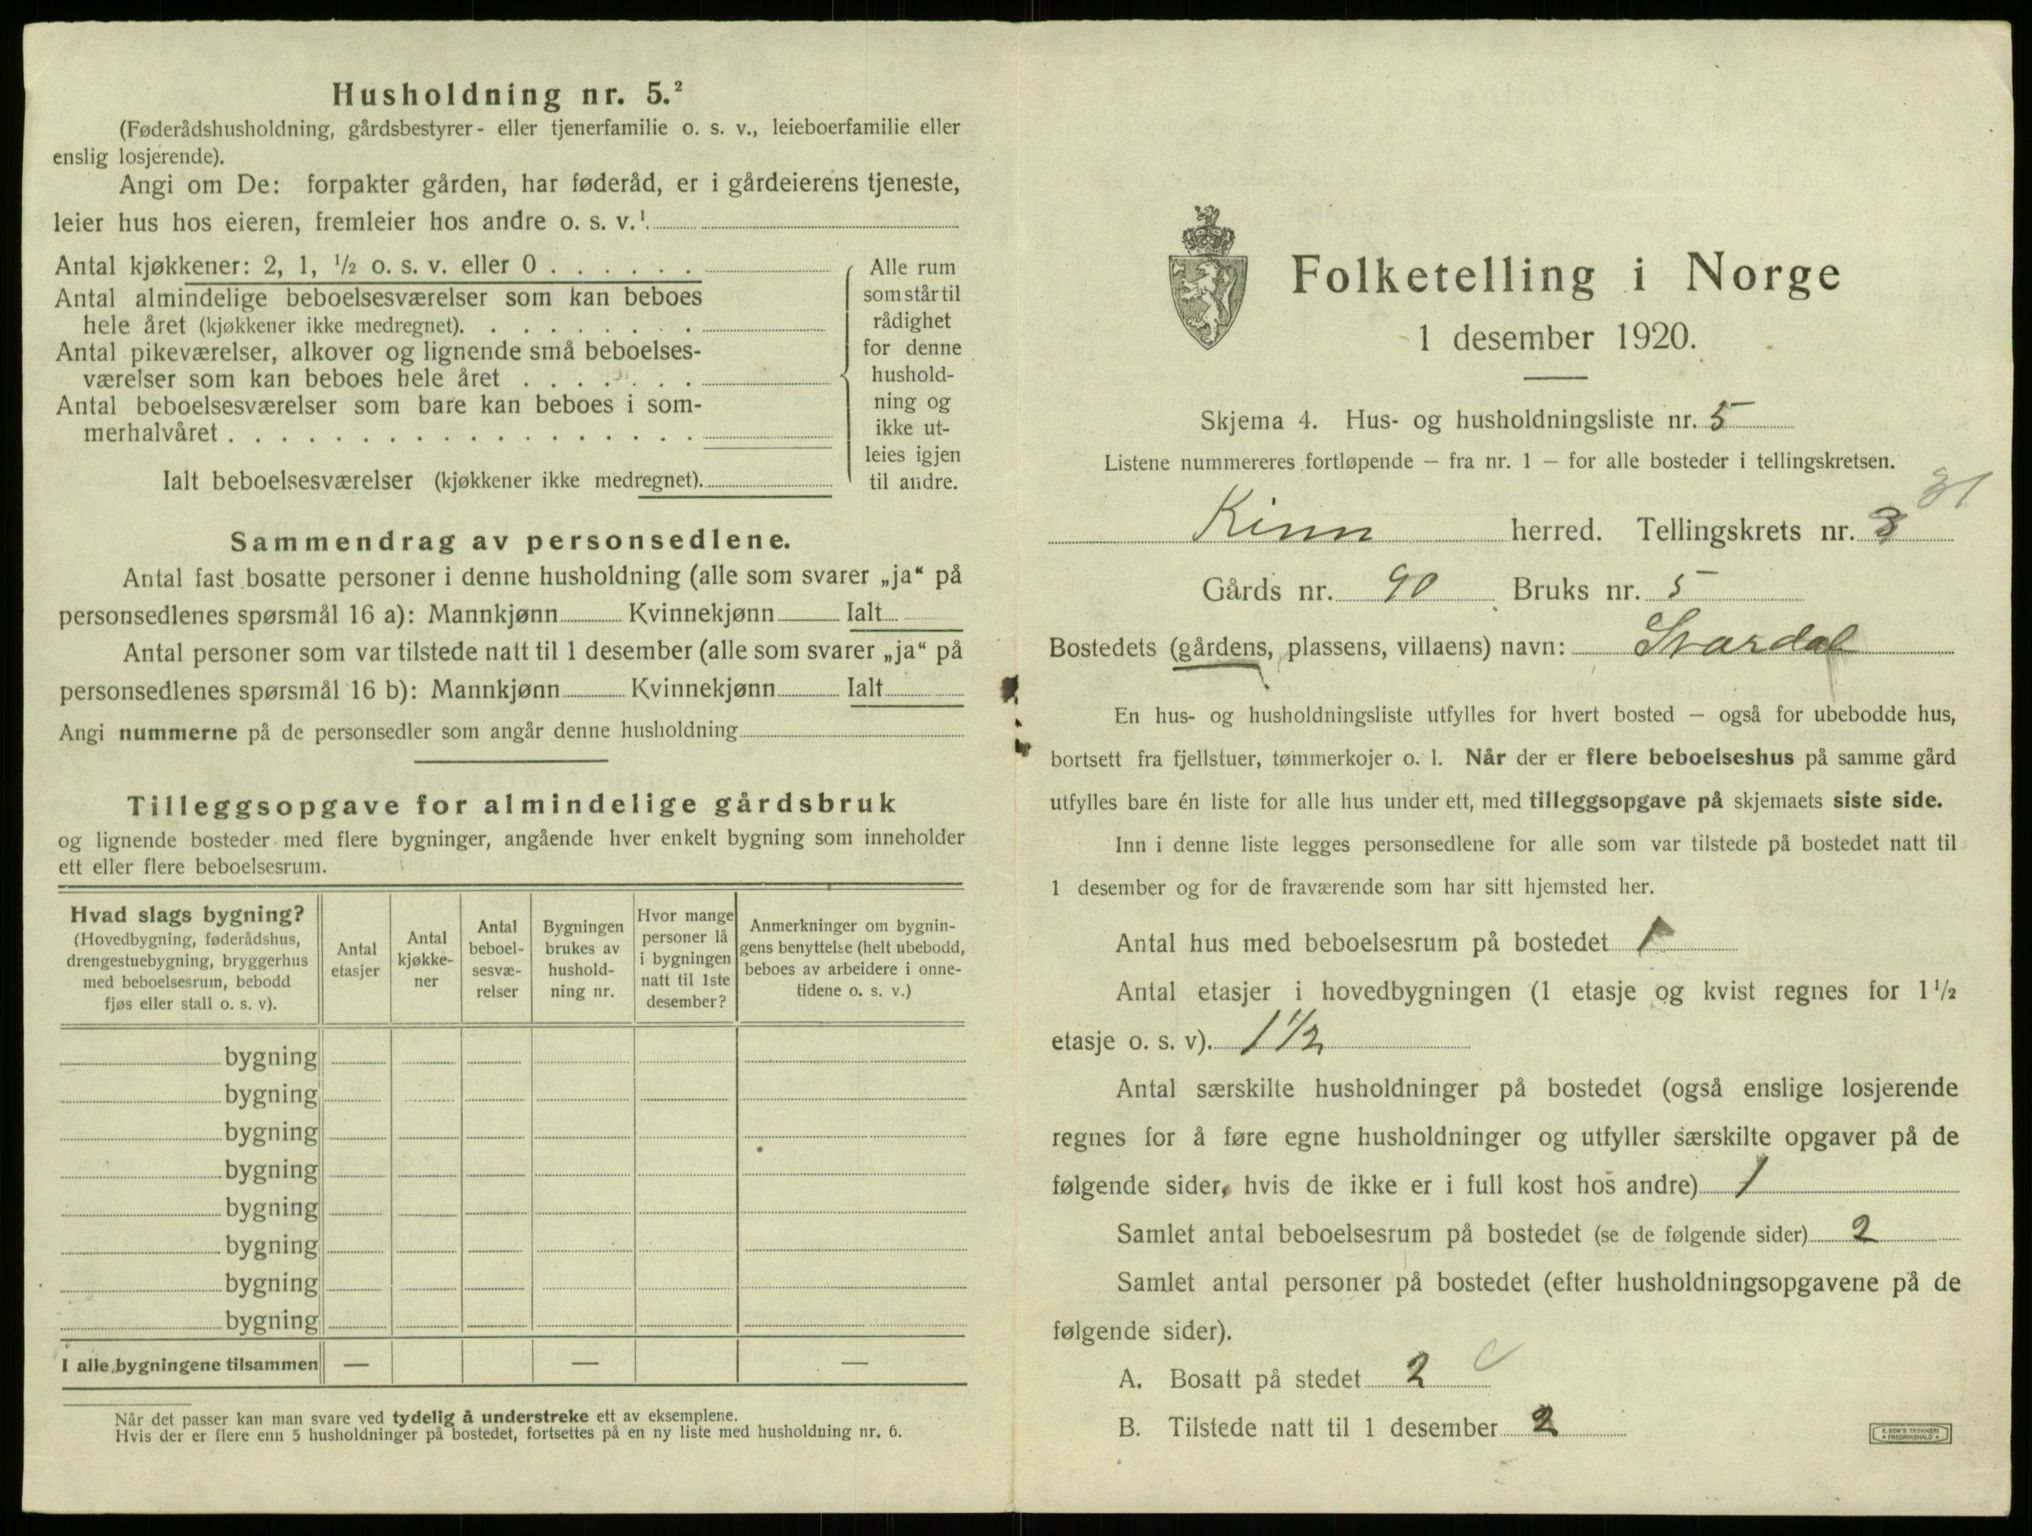 Husholdning nr. 5.²
(Føderådshusholdning, gårdsbestyrer- eller tjenerfamilie o. s. v., leieboerfamilie eller
enslig losjerende).
Angi om De: forpakter gården, har føderåd, er i gårdeierens tjeneste,
leier hus hos eieren, fremleier hos andre o. s. v.¹
Antal kjøkkener: 2, 1, ½ o. s. v. eller 0 . . . . . .
Antal almindelige beboelsesværelser som kan beboes
hele året (kjøkkener ikke medregnet). . . . . . . . .
Antal pikeværelser, alkover og lignende små beboelses-
værelser som kan beboes hele året . . . . . . .
Antal beboelsesværelser som bare kan beboes i som-
merhalvåret . . . . . . . . . . . . . . . . . .
Ialt beboelsesværelser (kjøkkener ikke medregnet).
Alle rum
som står til
rådighet
for denne
hushold-
ning og
ikke ut-
leies igjen
til andre.
Sammendrag av personsedlene.
Antal fast bosatte personer i denne husholdning (alle som svarer „ja“ på
personsedlenes spørsmål 16 a): Mannkjønn Kvinnekjønn Ialt
Antal personer som var tilstede natt til 1 desember (alle som svarer „ja“ på
personsedlenes spørsmål 16 b): Mannkjønn Kvinnekjønn Ialt
Angi nummerne på de personsedler som angår denne husholdning
Tilleggsopgave for almindelige gårdsbruk
og lignende bosteder med flere bygninger, angående hver enkelt bygning som inneholder
ett eller flere beboelsesrum.
Hvad slags bygning?
(Hovedbygning, føderådshus,
drengestuebygning, bryggerhus
med beboelsesrum, bebodd
fjøs eller stall o. s. v).
Antal
etasjer
Antal
kjøkke-
ner
Antal
beboel-
sesvæ-
relser
Bygningen
brukes av
hushold-
ning nr.
Hvor mange
personer lå
i bygningen
natt til 1ste
desember?
Anmerkninger om bygnin-
gens benyttelse (helt ubebodd,
beboes av arbeidere i onne-
tidene o. s. v.)
bygning
bygning
bygning
bygning
bygning
bygning
bygning
bygning
I alle bygningene tilsammen — — —
Når det passer kan man svare ved tydelig å understreke ett av eksemplene.
Hvis der er flere enn 5 husholdninger på bostedet, fortsettes på en ny liste med husholdning nr. 6.
Folketelling i Norge
1 desember 1920.
Skjema 4. Hus- og husholdningsliste nr. 5
Listene nummereres fortløpende – fra nr. 1 – for alle bosteder i tellingskretsen.
31
Kinn herred. Tellingskrets nr. 3
Gårds nr. 90 Bruks nr. 5
Bostedets (gårdens, plassens, villaens) navn: Svardal
En hus- og husholdningsliste utfylles for hvert bosted – også for ubebodde hus,
bortsett fra fjellstuer, tømmerkojer o. l. Når der er flere beboelseshus på samme gård
utfylles bare én liste for alle hus under ett, med tilleggsopgave på skjemaets siste side.
Inn i denne liste legges personsedlene for alle som var tilstede på bostedet natt til
1 desember og for de fraværende som har sitt hjemsted her.
Antal hus med beboelsesrum på bostedet 1
Antal etasjer i hovedbygningen (1 etasje og kvist regnes for 1½
etasje o. s. v). 1½
Antal særskilte husholdninger på bostedet (også enslige losjerende
regnes for å føre egne husholdninger og utfyller særskilte opgaver på de
følgende sider, hvis de ikke er i full kost hos andre) 1
Samlet antal beboelsesrum på bostedet (se de følgende sider) 2
Samlet antal personer på bostedet (efter husholdningsopgavene på de
følgende sider).
A. Bosatt på stedet 2
B. Tilstede natt til 1 desember 2
E. SEM'S TRYKKERI
FREDRIKSHALD